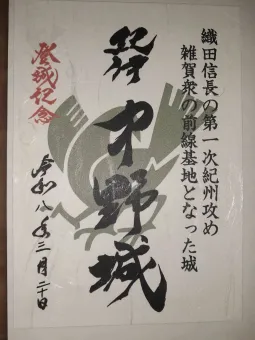 織田信長の第一次紀州攻め
雑賀衆の前線基地となった城
紀伊 中野城
登城紀念
令和八年三月二十日